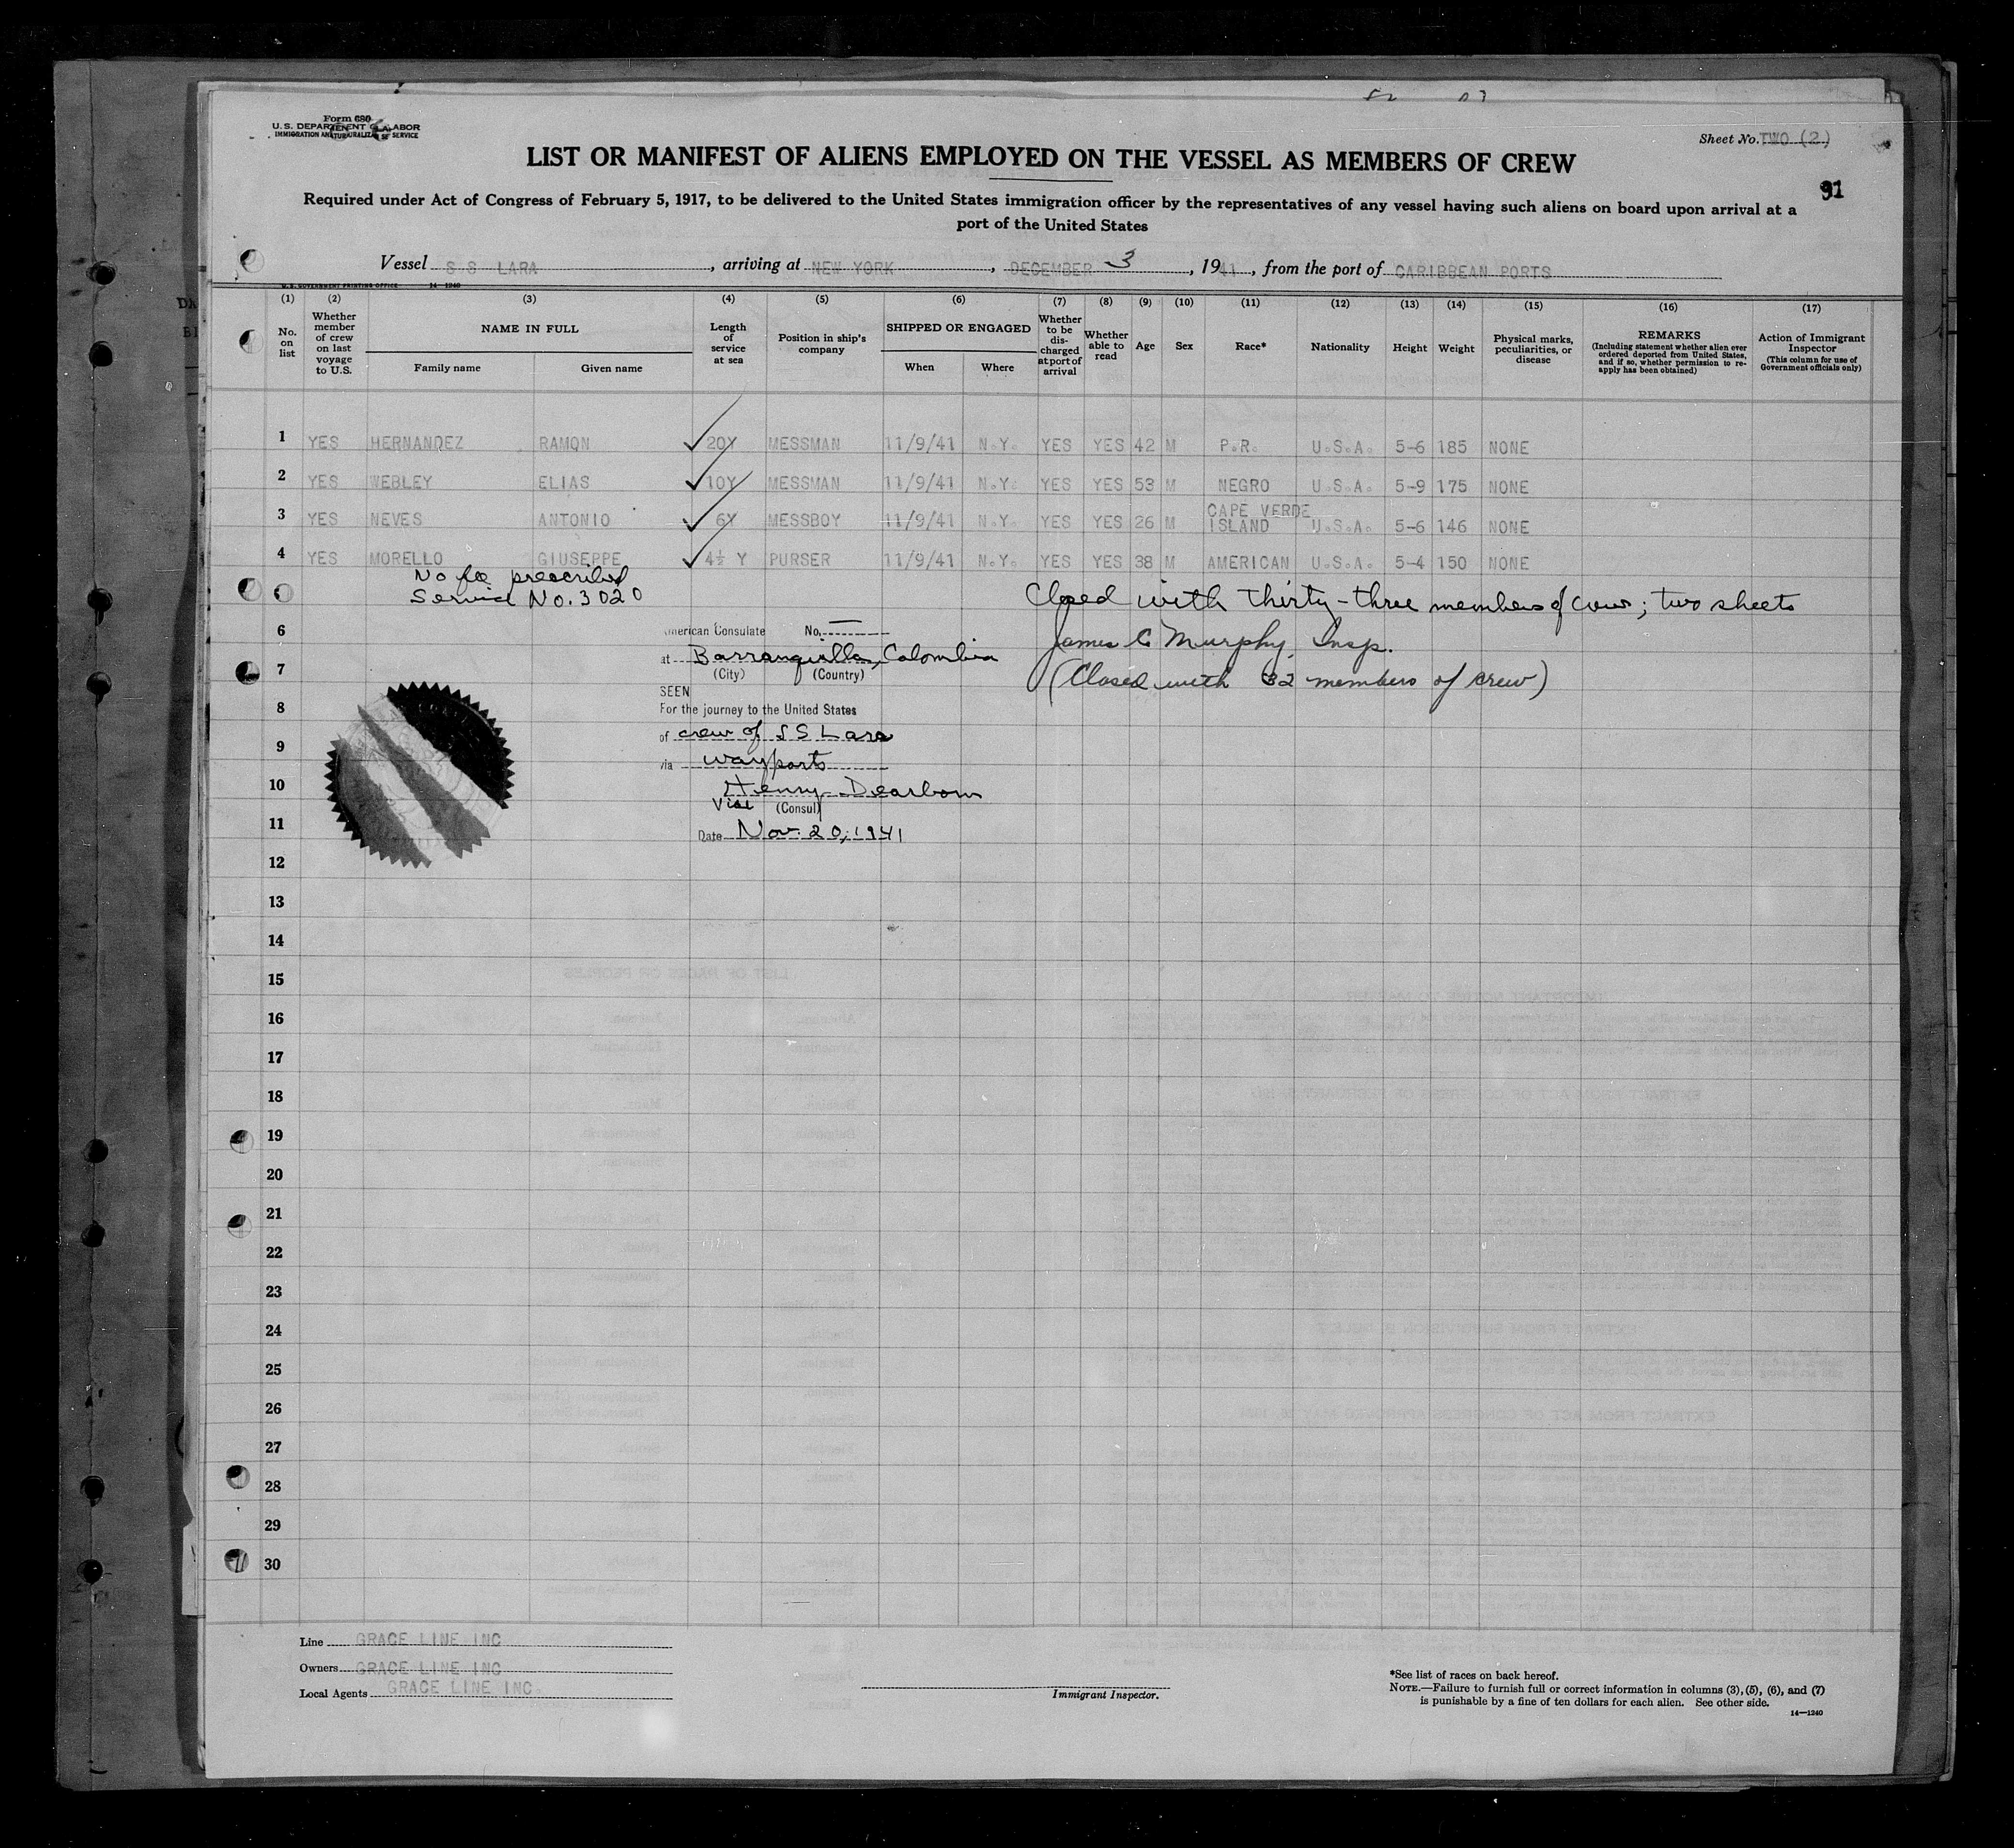 Form 680
U.S. DEPARTMENT OF LABOR
IMMIGRATION AND NATURALIZATION SERVICE
Sheet No. TWO (2)
LIST OR MANIFEST OF ALIENS EMPLOYED ON THE VESSEL AS MEMBERS OF CREW
91
Required under Act of Congress of February 5, 1917, to be delivered to the United States immigration officer by the representatives of any vessel having such aliens on board upon arrival at a
port of the United States
Vessel S S LARA, arriving at NEW YORK, DECEMBER 3, 1941, from the port of CARIBBEAN PORTS
U.S. GOVERNMENT PRINTING OFFICE 14—1240
(1) (2) (3) (4) (5) (6) (7) (8) (9) (10) (11) (12) (13) (14) (15) (16) (17)
No. on list
Whether member of crew on last voyage to U.S.
NAME IN FULL
Family name Given name
Length of service at sea
Position in ship's company
SHIPPED OR ENGAGED
When Where
Whether to be discharged at port of arrival
Whether able to read
Age
Sex
Race*
Nationality
Height
Weight
Physical marks, peculiarities, or disease
REMARKS
(Including statement whether alien ever ordered deported from United States, and if so, whether permission to reapply has been obtained)
Action of Immigrant Inspector
(This column for use of Government officials only)
1 YES HERNANDEZ RAMON 20Y MESSMAN 11/9/41 N.Y. YES YES 42 M P.R. U.S.A. 5-6 185 NONE
2 YES WEBLEY ELIAS 10Y MESSMAN 11/9/41 N.Y. YES YES 53 M NEGRO U.S.A. 5-9 175 NONE
3 YES NEVES ANTONIO 6Y MESSBOY 11/9/41 N.Y. YES YES 26 M CAPE VERDE ISLAND U.S.A. 5-6 146 NONE
4 YES MORELLO GIUSEPPE 4½ Y PURSER 11/9/41 N.Y. YES YES 38 M AMERICAN U.S.A. 5-4 150 NONE
No fee prescribed
Service No. 3020
Closed with thirty-three members of crew; two sheets
James C Murphy Insp.
(Closed with 32 members of crew)
American Consulate No. —
at Barranquilla, Colombia
(City) (Country)
SEEN
For the journey to the United States
of crew of SS Lara
via wayports
Henry Dearborn
Vice (Consul)
Date Nov. 20, 1941
6
7
8
9
10
11
12
13
14
15
16
17
18
19
20
21
22
23
24
25
26
27
28
29
30
Line GRACE LINE INC
Owners GRACE LINE INC
Local Agents GRACE LINE INC.
Immigrant Inspector.
*See list of races on back hereof.
NOTE.—Failure to furnish full or correct information in columns (3), (5), (6), and (7)
is punishable by a fine of ten dollars for each alien. See other side.
14—1240